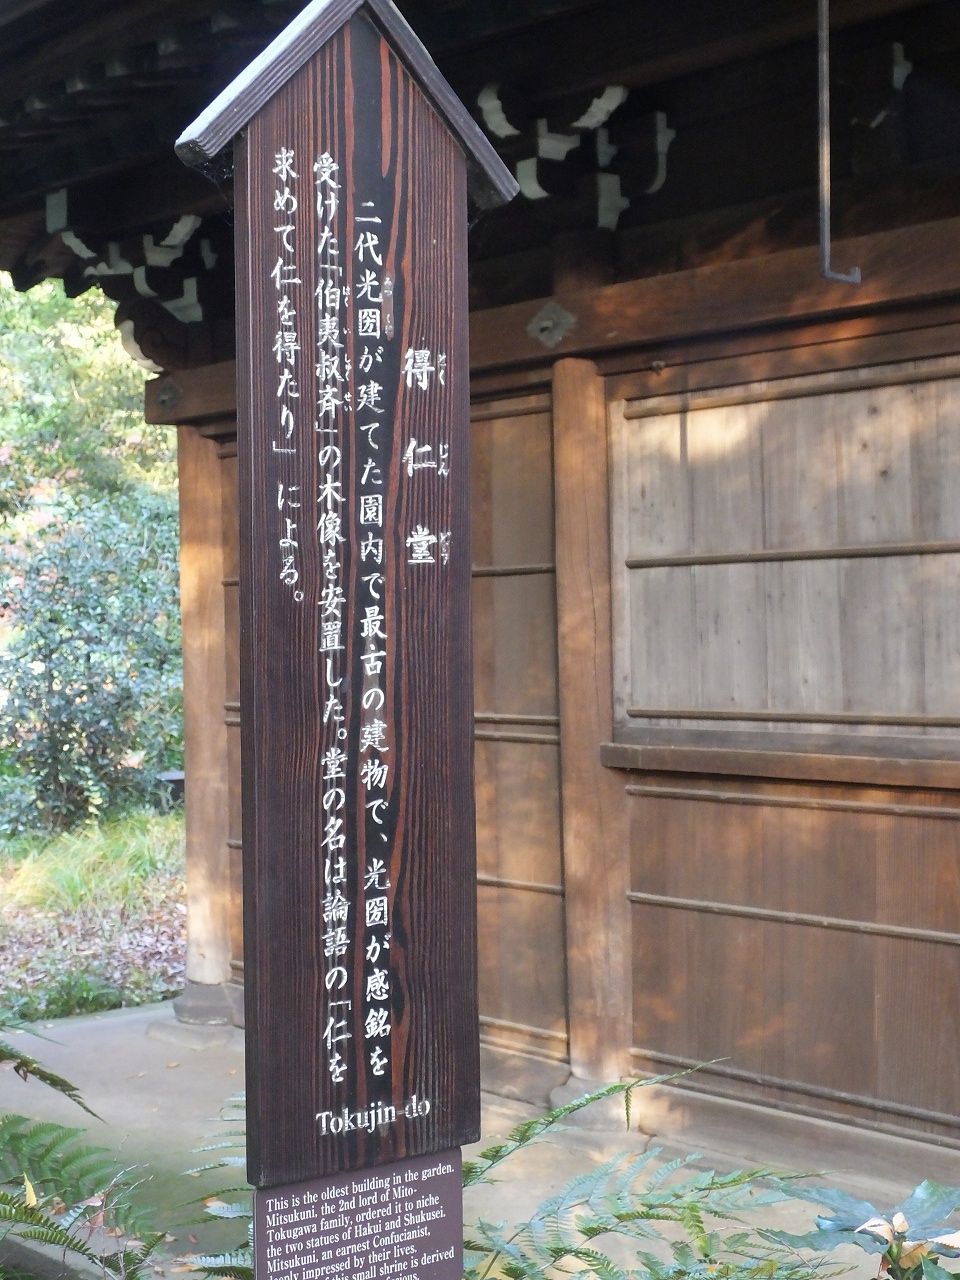 得仁堂
とくじんどう
二代光圀が建てた園内で最古の建物で、光圀が感銘を
みつくに
受けた「伯夷叔斉」の木像を安置した。堂の名は論語の「仁を
はくいしゅくせい
求めて仁を得たり」による。
Tokujin-do
This is the oldest building in the garden.
Mitsukuni, the 2nd lord of Mito-
Tokugawa family, ordered it to niche
the two statues of Hakui and Shukusei.
Mitsukuni, an earnest Confucianist,
deeply impressed by their lives.
this small shrine is derived